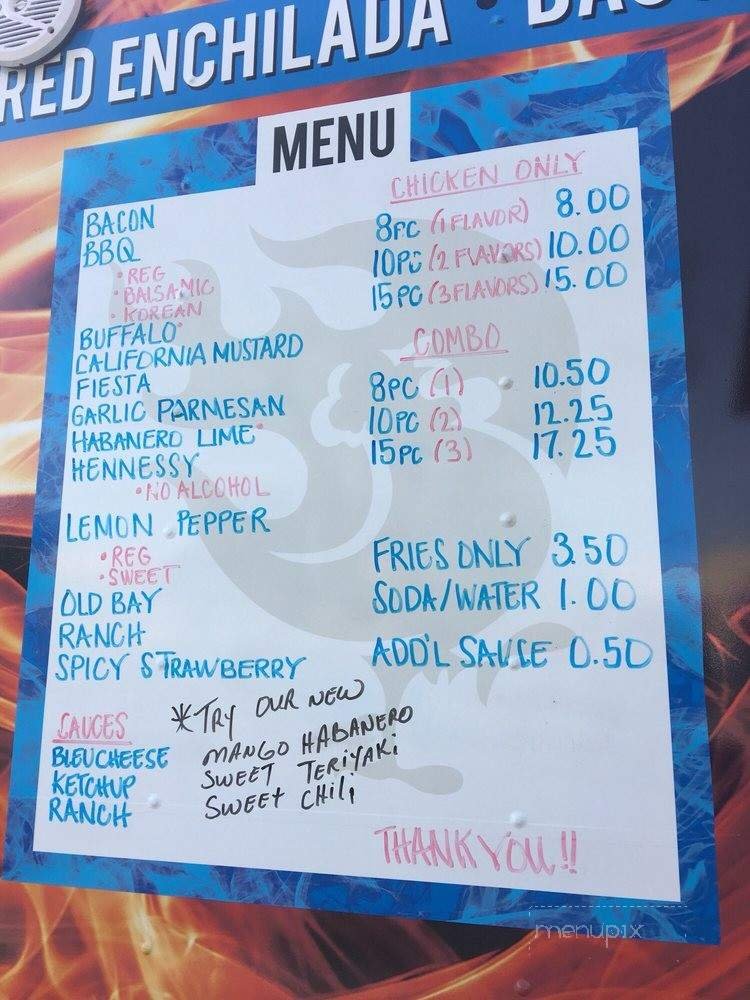 RED ENCHILADA •
MENU
BACON
BBQ
• REG
• BALSAMIC
• KOREAN
BUFFALO
CALIFORNIA MUSTARD
FIESTA
GARLIC PARMESAN
HABANERO LIME
HENNESSY
• NO ALCOHOL
LEMON PEPPER
• REG
• SWEET
OLD BAY
RANCH
SPICY STRAWBERRY
CHICKEN ONLY
8PC (1 FLAVOR) 8.00
10PC (2 FLAVORS) 10.00
15PC (3 FLAVORS) 15.00
COMBO
8PC (1) 10.50
10PC (2) 12.25
15PC (3) 17.25
FRIES ONLY 3.50
SODA/WATER 1.00
ADD'L SAUCE 0.50
SAUCES
BLEUCHEESE
KETCHUP
RANCH
*TRY OUR NEW
MANGO HABANERO
SWEET TERIYAKI
SWEET CHILI
THANK YOU!!
menupix